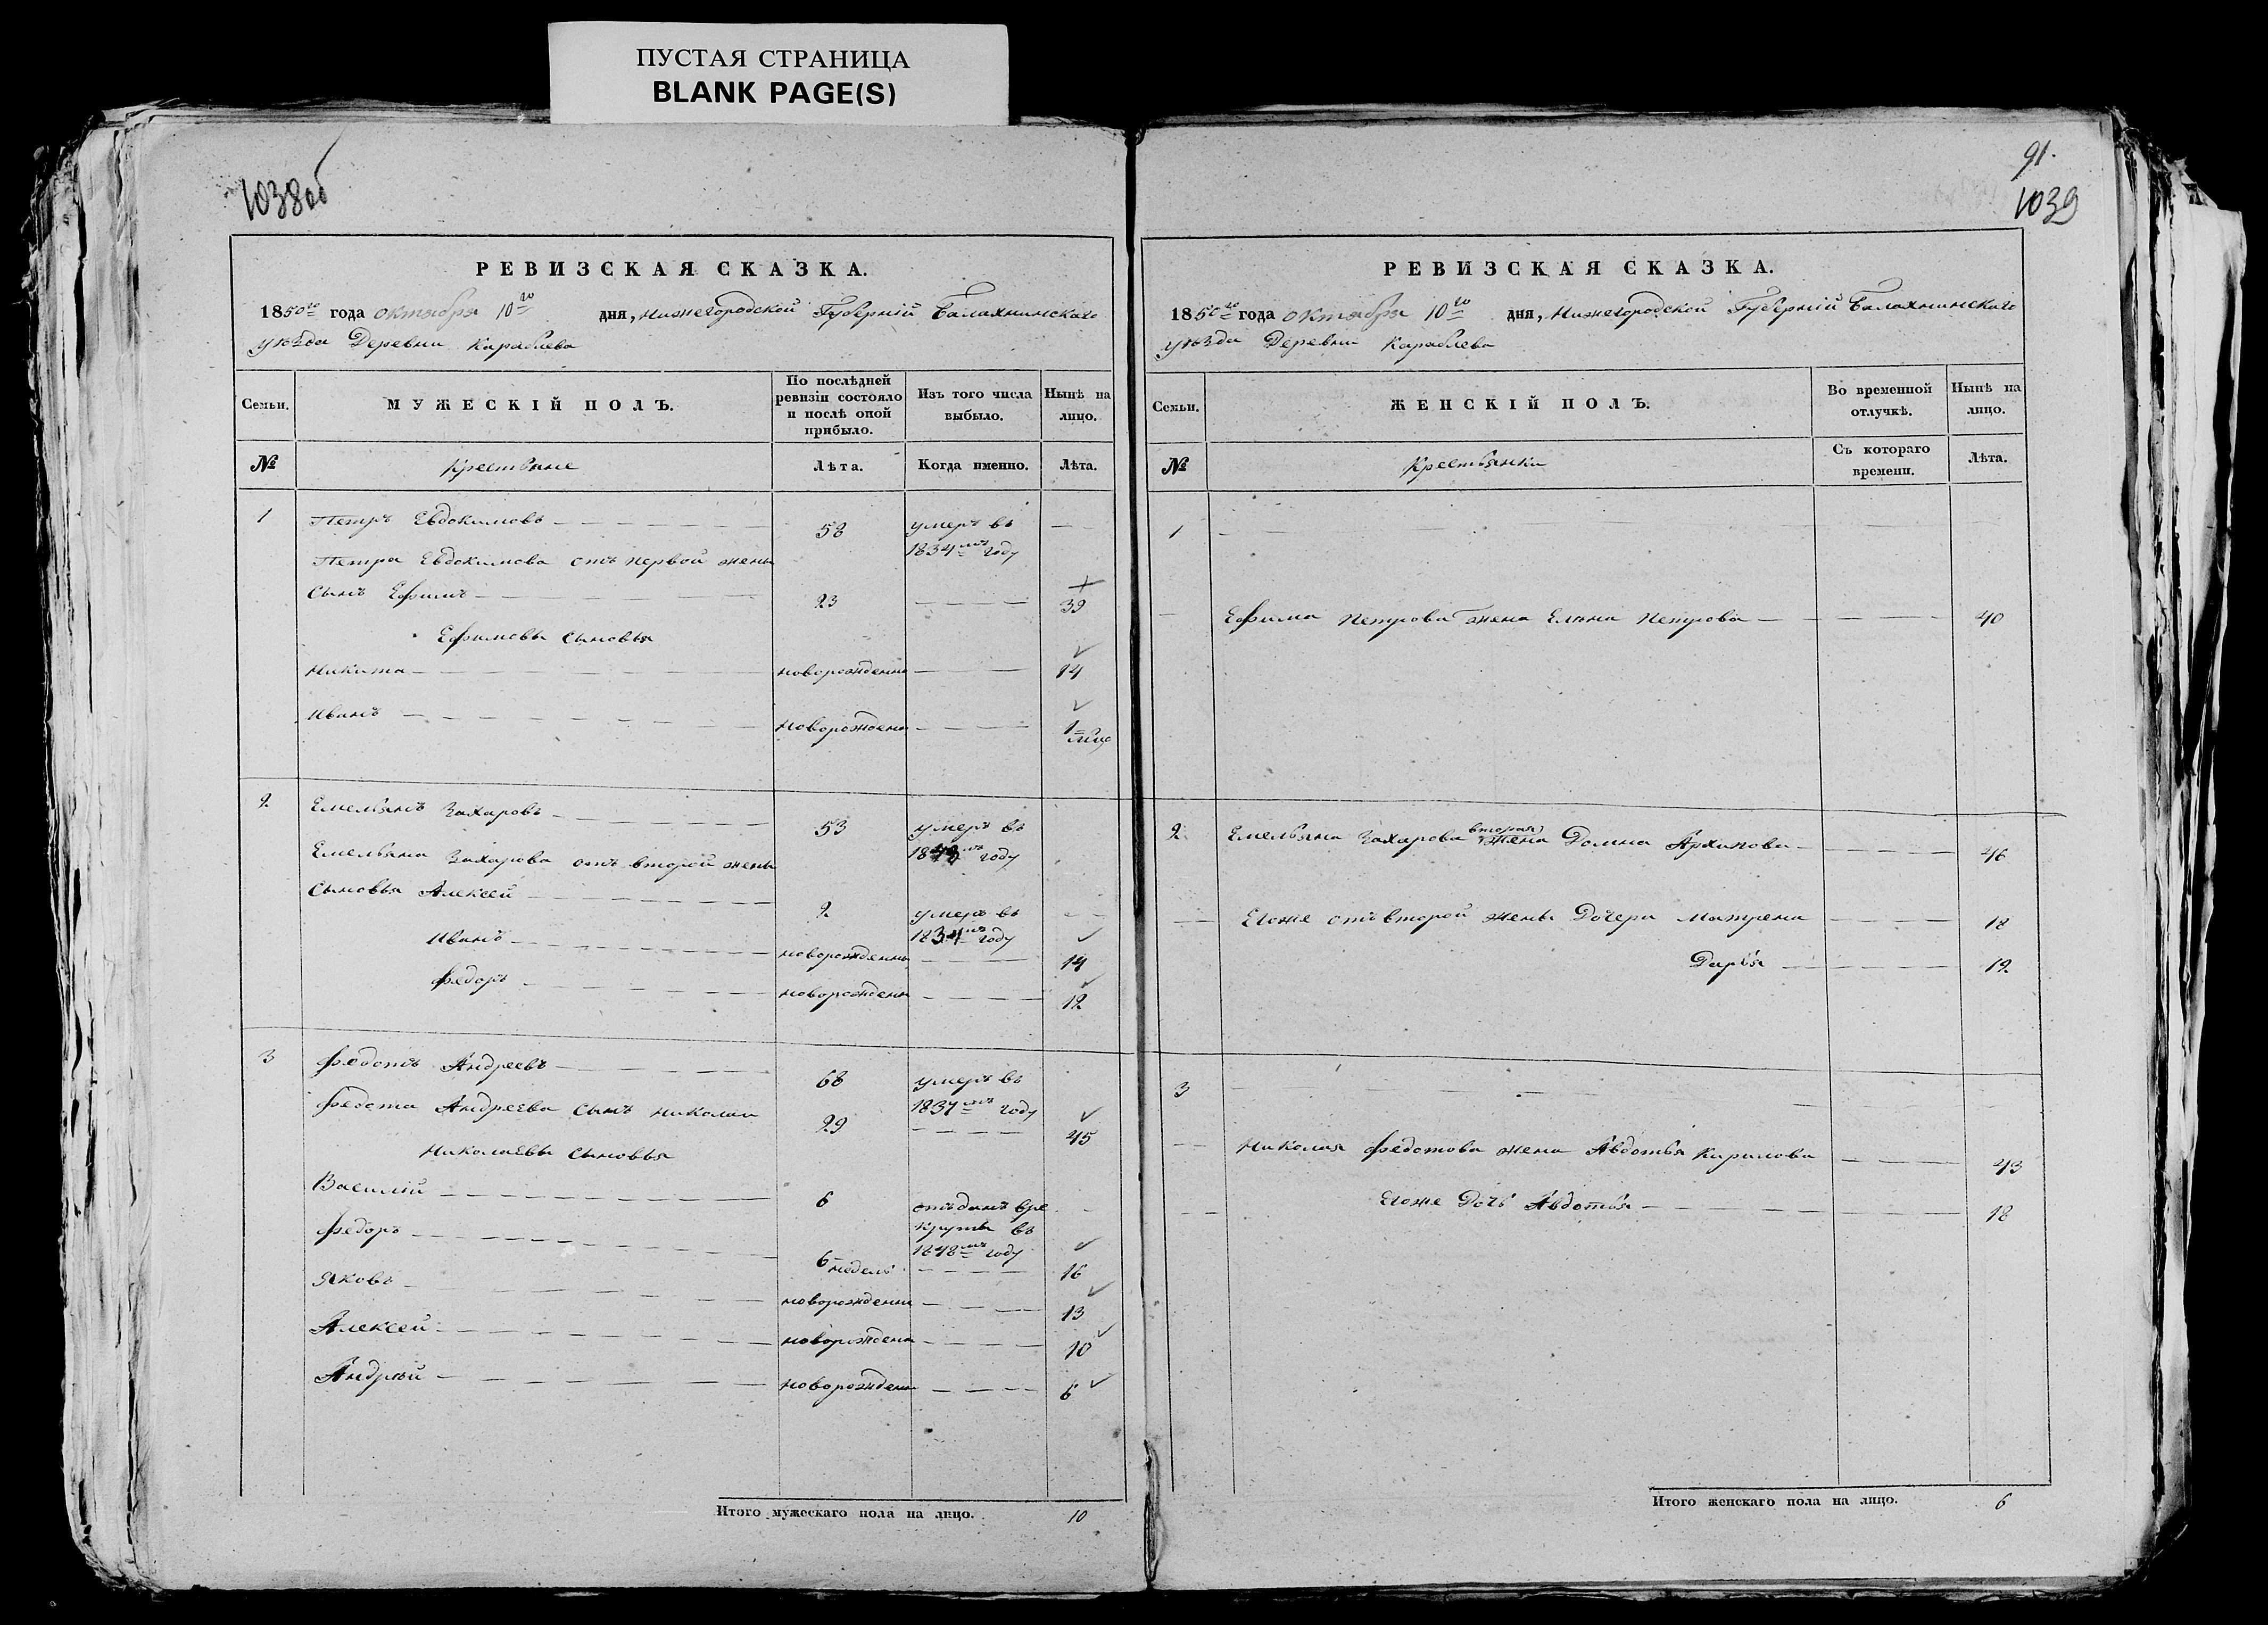 ПУСТАЯ СТРАНИЦА
BLANK PAGE(S)
1038об
РЕВИЗСКАЯ СКАЗКА.
1850го года октября 10го дня, Нижегородской Губерній Балахнинскаго
уѣзда Деревни Караблева
Семьи.
МУЖЕСКІЙ ПОЛЪ.
По послѣдней ревизіи состояло и послѣ оной прибыло.
Изъ того числа выбыло.
Нынѣ на лицо.
№
Крестьяне
Лѣта.
Когда именно.
Лѣта.
1 Петръ Евдокимовъ 58 умеръ въ 1834мъ году
Петра Евдокимова отъ первой жены
сынъ Ефимъ 23 39
Ефимовы сыновья
Никита новорожденны 14
Иванъ новорождены 1 мѣца
2 Емельянъ Захаровъ 53 умеръ въ году
Емельяна Захарова отъ второй жены
сыновья Алексей 2 умеръ въ 1834мъ году
Иванъ новорожденны 14
Федоръ новорожденн 12
3 Федотъ Андреевъ 68 умеръ въ 1837мъ году
Федота Андреева сынъ Николаи 29 45
Николаевы сыновья
Василій 6 отъданъ вре
круты въ
1848мъ году
Федоръ 6 недель 16
Яковъ новорожденны 13
Алексей новорождены 10
Андрѣй новорождены 6
Итого мужескаго пола на лицо. 10
91.
1039
РЕВИЗСКАЯ СКАЗКА.
1850го года октября 10го дня, Нижегородской Губерній Балахнинскаго
уѣзда Деревни Караблева
Семьи.
ЖЕНСКІЙ ПОЛЪ.
Во временной отлучкѣ.
Нынѣ на лицо.
№
Крестьянки
Съ котораго времени.
Лѣта.
1
Ефима Петрова жена Елѣна Петрова 40
2. Емельяна Захарова вторая жена Домна Архипова 46
Егоже отъ второй жены Дочери Матрена 18
Дарья 12
3
Николая Федотова жена Авдотья Кирилова 43
Егоже Дочь Авдотья 18
Итого женскаго пола на лицо. 6